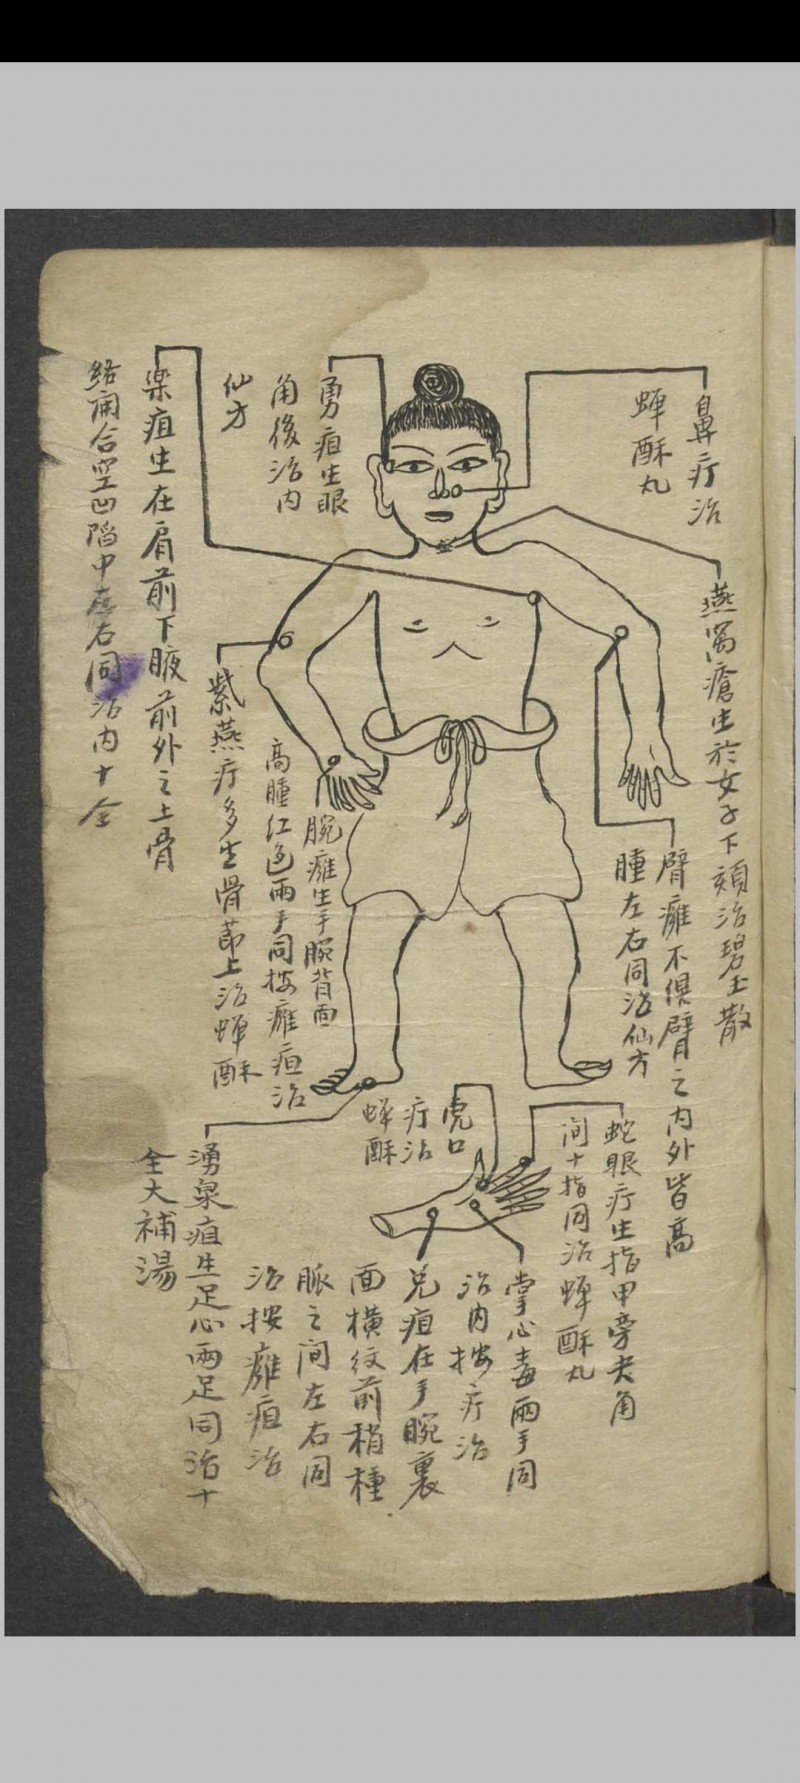 鼻疔治
蟬酥丸
燕窩瘡生於女子下頦治碧玉散
臂癰不俱臂之內外皆高
腫左右同治仙方
勇疽生眼
角後治內
仙方
藥疽生在肩前下腋前外之上骨
絡開合空凹陷中左右同治內十全
紫燕疔多生骨節上治蟬酥
腕癰生手腕背面
高腫紅色兩手同按癰疽治
虎口
疔治
蟬酥
蛇眼疔生指甲旁夹角
间十指同治蟬酥丸
掌心毒兩手同
治內按疔治
兑疽在手腕裏
面橫纹前稍種
脈之间左右同
治按癰疽治
湧泉疽生足心兩足同治十
全大補湯